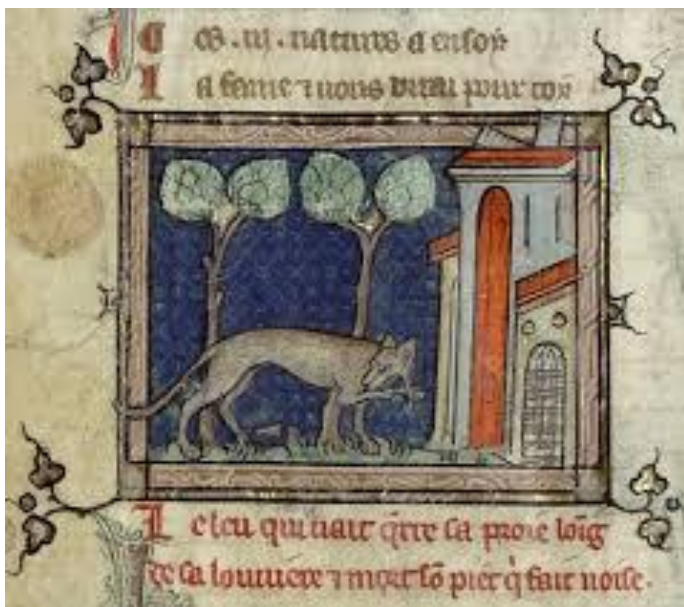 Ces .iij. natures a en soi
La feme ⁊ uous dirai pour coi
Le leu qui uait q̃rre sa proie loing
de sa louuiere ⁊ mort sõ pie q̃ fait noise.